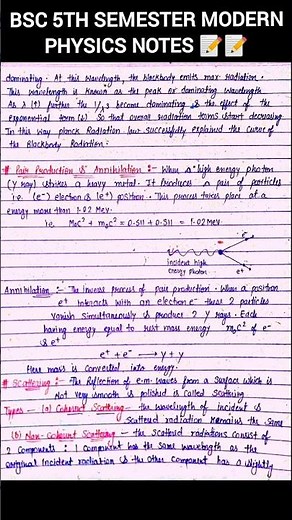 BSC 5TH SEMESTER MODERN
PHYSICS NOTES 📝📝
dominating. At this wavelength, the blackbody emits max radiation.
This wavelength is known as the peak or dominating wavelength
As λ (↑) further the 1/λ5 become dominating & the effect of the
exponential term (↓) So that overall radiation terms start decreasing
In this way planck Radiation law successfully explained the curve of
the Blackbody Radiation:
# Pair Production & Annihilation :- When a high energy photon
(γ ray) strikes a heavy metal. It produces a pair of particles
i.e. (e-) electron & (e+) position. This process takes place at a
energy more than 1.02 Mev.
i.e. m₀c² + m₀c² = 0.511 + 0.511 = 1.02 Mev.
e-
incident high
energy Photon
e+
Annihilation :- The inverse process of pair production. When a positron
e+ interacts with an electron e- these 2 particles
vanish simultaneously & produce 2 γ rays. Each
having energy equal to rest mass energy m₀c² of e-
& e+
e+ + e- → γ + γ
Here mass is converted into energy.
# Scattering :- The Reflection of e.m. waves from a surface which is
not very smooth is polished is called scattering
Types - (a) Coherent Scattering - the wavelength of incident &
scattered radiation remains the same
(b) Non-Coherent Scattering - the scattered radiations consist of
2 components : 1 component has the same wavelength as the
original incident radiation & the other component has a slightly